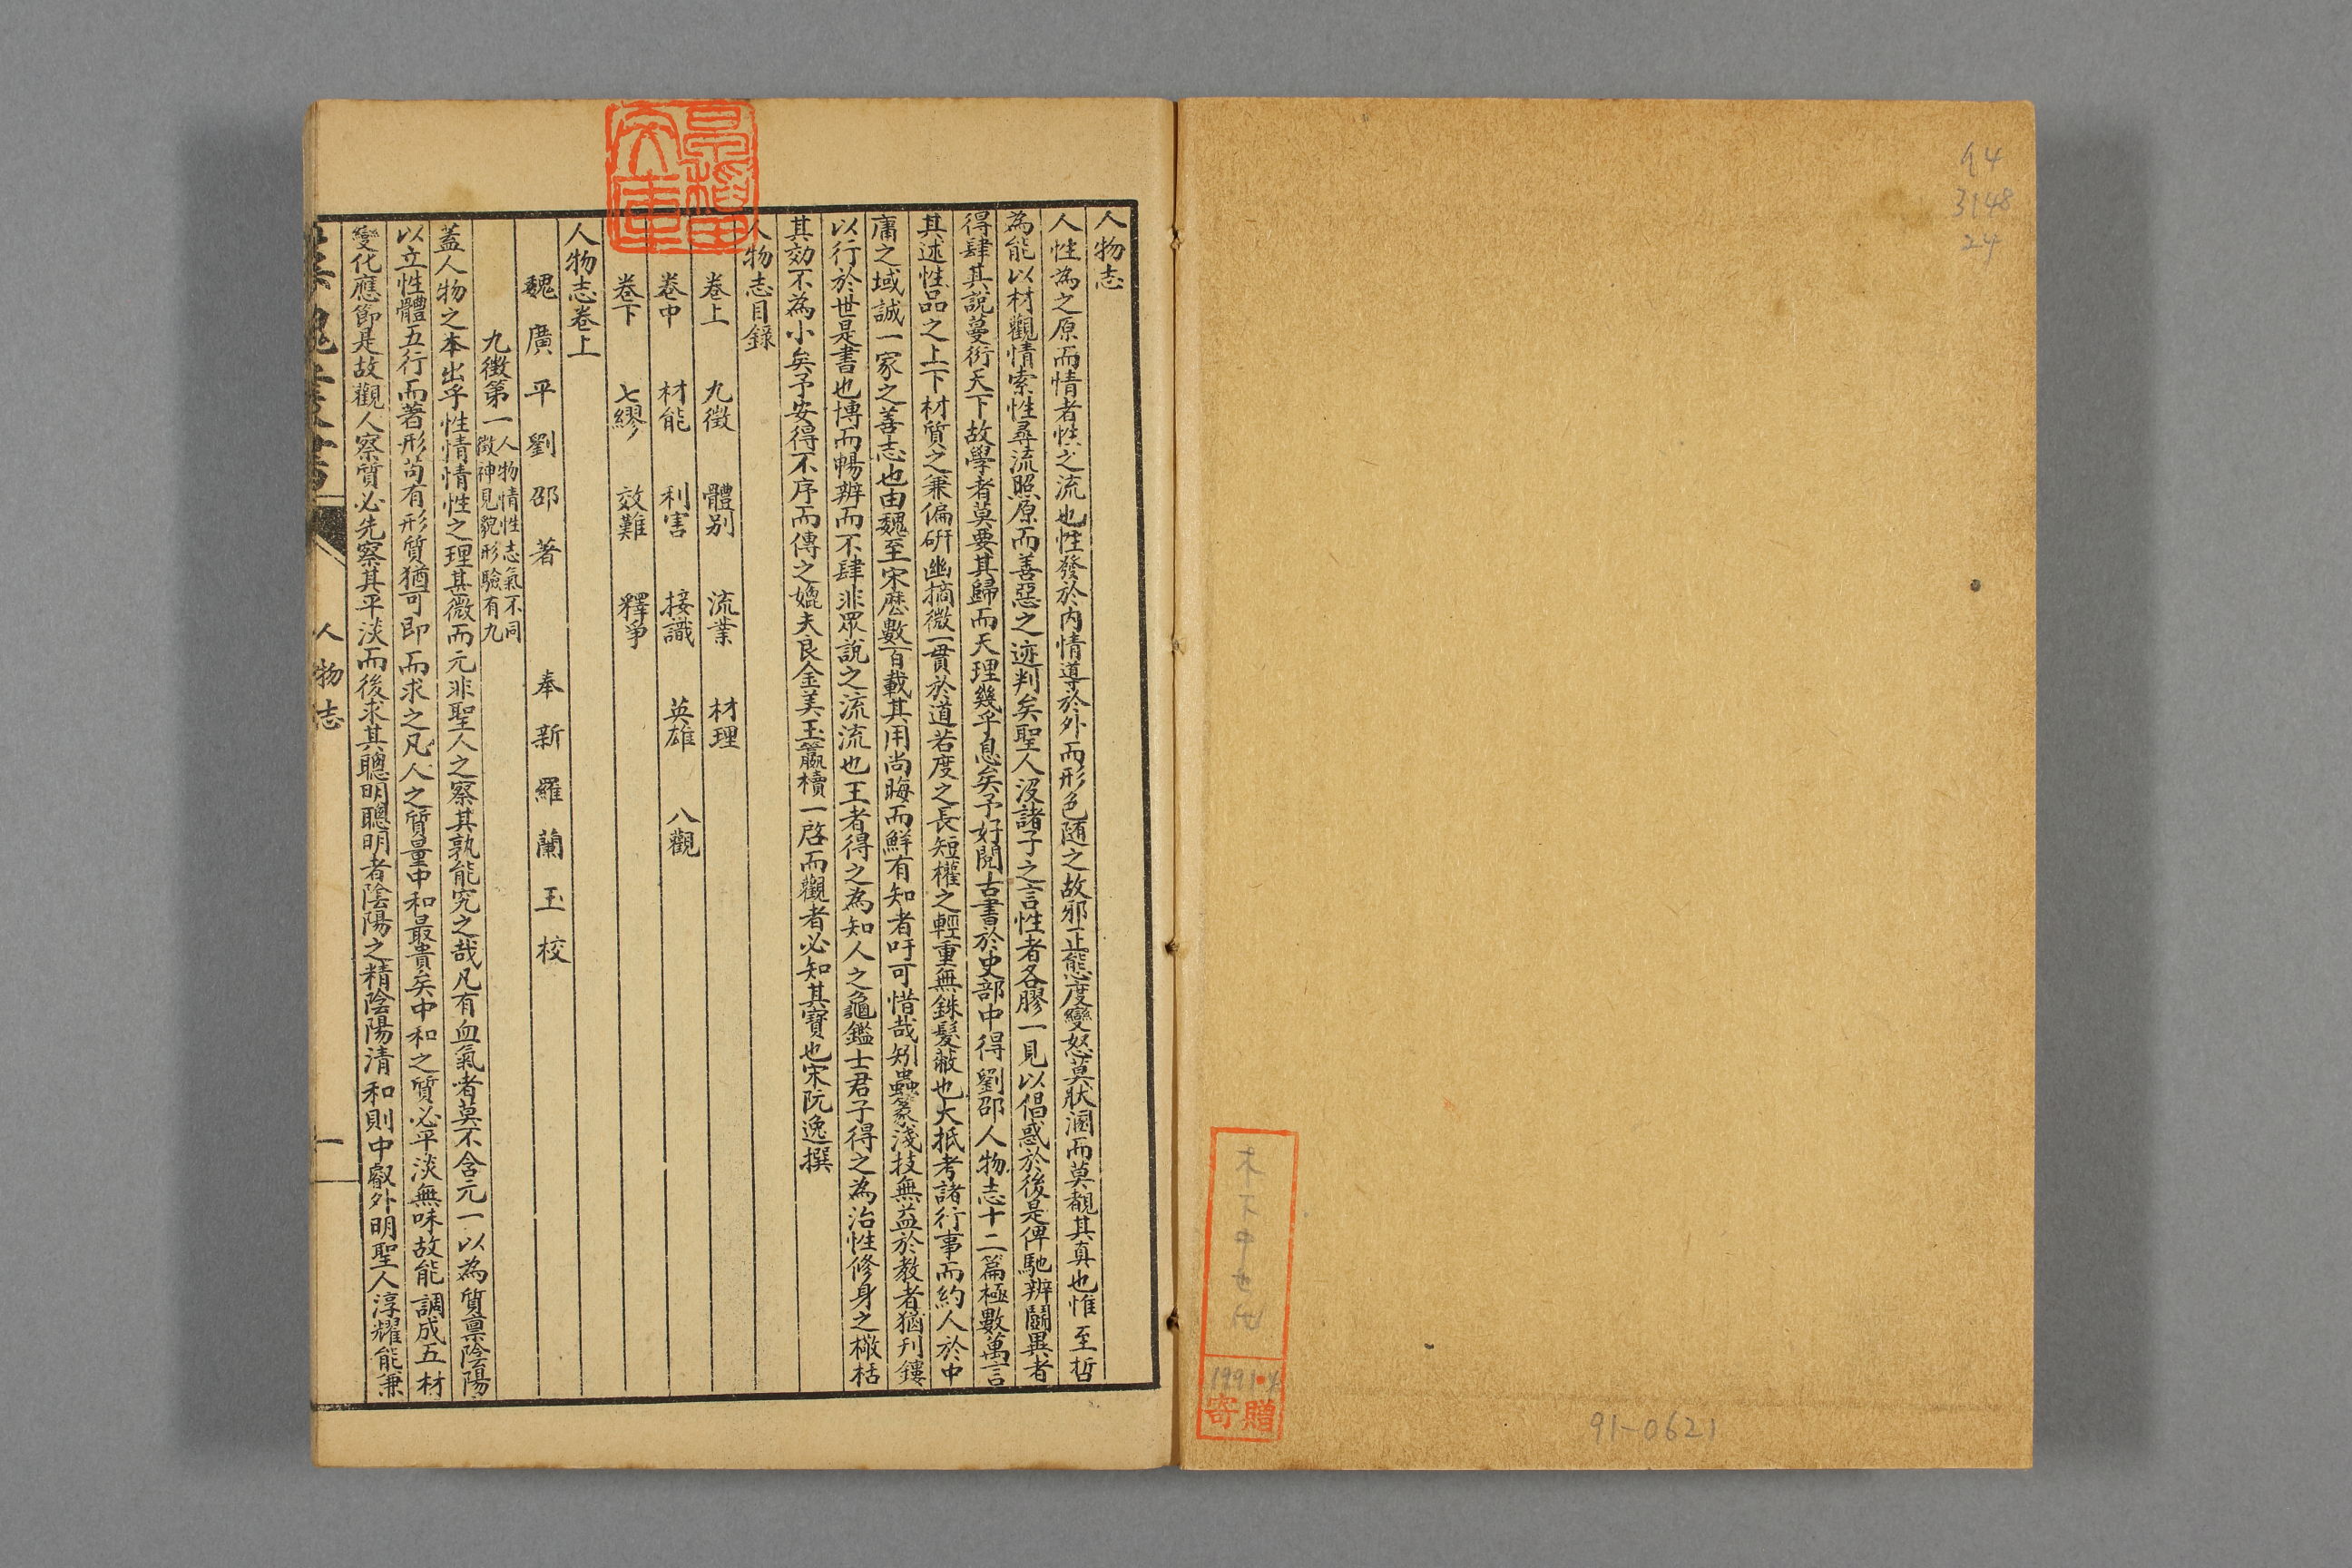 94
3148
24
91-0621
寄贈
人物志
人性為之原而情者性之流也性發於內情導於外而形色随之故邪正態度變怒莫狀溷而莫覩其真也惟至哲
為能以材觀情索性尋流照原而善惡之迹判矣聖人沒諸子之言性者各膠一見以倡惑於後是俾馳辨鬭異者
得肆其說蔓衍天下故學者莫要其歸而天理幾乎息矣予好閱古書於史部中得劉邵人物志十二篇極數萬言
其述性品之上下材質之兼偏研幽摘微一貫於道若度之長短權之輕重無銖髮蔽也大抵考諸行事而約人於中
庸之域誠一家之善志也由魏至宋歷數百載其用尚晦而鮮有知者吁可惜哉矧蟲篆淺技無益於教者猶刊鏤
以行於世是書也博而暢辨而不肆非眾說之流流也王者得之為知人之龜鑑士君子得之為治性修身之檄栝
其効不為小矣予安得不序而傳之媲夫良金美玉籯櫝一啓而觀者必知其寶也宋阮逸撰
人物志目錄
卷上 九徵 體别 流業 材理
卷中 材能 利害 接識 英雄 八觀
卷下 七繆 效難 釋爭
人物志卷上
魏 廣平 劉邵 著 奉新 羅蘭玉 校
九徵第一 人物情性志氣不同徵神見貌形驗有九
蓋人物之本出乎性情情性之理其微而元非聖人之察其孰能究之哉凡有血氣者莫不含元一以為質禀陰陽
以立性體五行而著形苟有形質猶可即而求之凡人之質量中和最貴矣中和之質必平淡無味故能調成五材
變化應節是故觀人察質必先察其平淡而後求其聰明聰明者陰陽之精陰陽清和則中叡外明聖人淳耀能兼
人物志 一